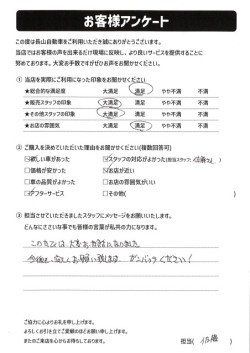 お客様アンケート
この度は長山自動車をご利用いただき誠にありがとうございます。
当店ではお客様の声を出来るだけ現場に反映し、より良いサービスを提供することに
努めております。大変お手数ですがぜひお声をお聞かせください。
① 当店を実際にご利用になった印象をお聞かせください
★総合的な満足度 大満足 満足 やや不満 不満
★販売スタッフの印象 大満足 満足 やや不満 不満
★その他スタッフの印象 大満足 満足 やや不満 不満
★お店の雰囲気 大満足 満足 やや不満 不満
② ご購入を決めていただいた理由をお聞かせください(複数回答可)
☑欲しい車があった ☑スタッフの対応がよかった(担当スタッフ: 佐藤)
□価格が安かった ☑お店が近い
□車の品質がよかった □お店の雰囲気がいい
☑アフターサービス □その他( )
③ 担当させていただきましたスタッフにメッセージをお願いいたします。
どんなにささいな事でも皆様の言葉が私共の力になります。
このたびは、大変お世話になりました
今後とも、宜しくお願い致します。 がんばって ください!
ご協力に心よりお礼を申し上げます。
よろしくお引き立てご愛顧のほどお願い申し上げます。
またのご来店を心からお待ちしております。
担当( 佐藤 )